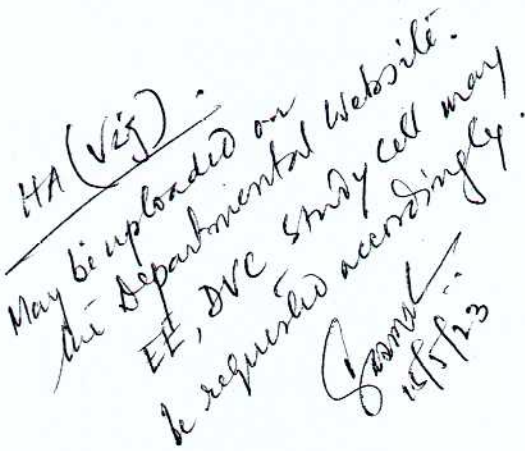 HA (Vig).
May be uploaded on
the Departmental website.
EE, DVC Study Cell may
be requested accordingly.
15/5/23